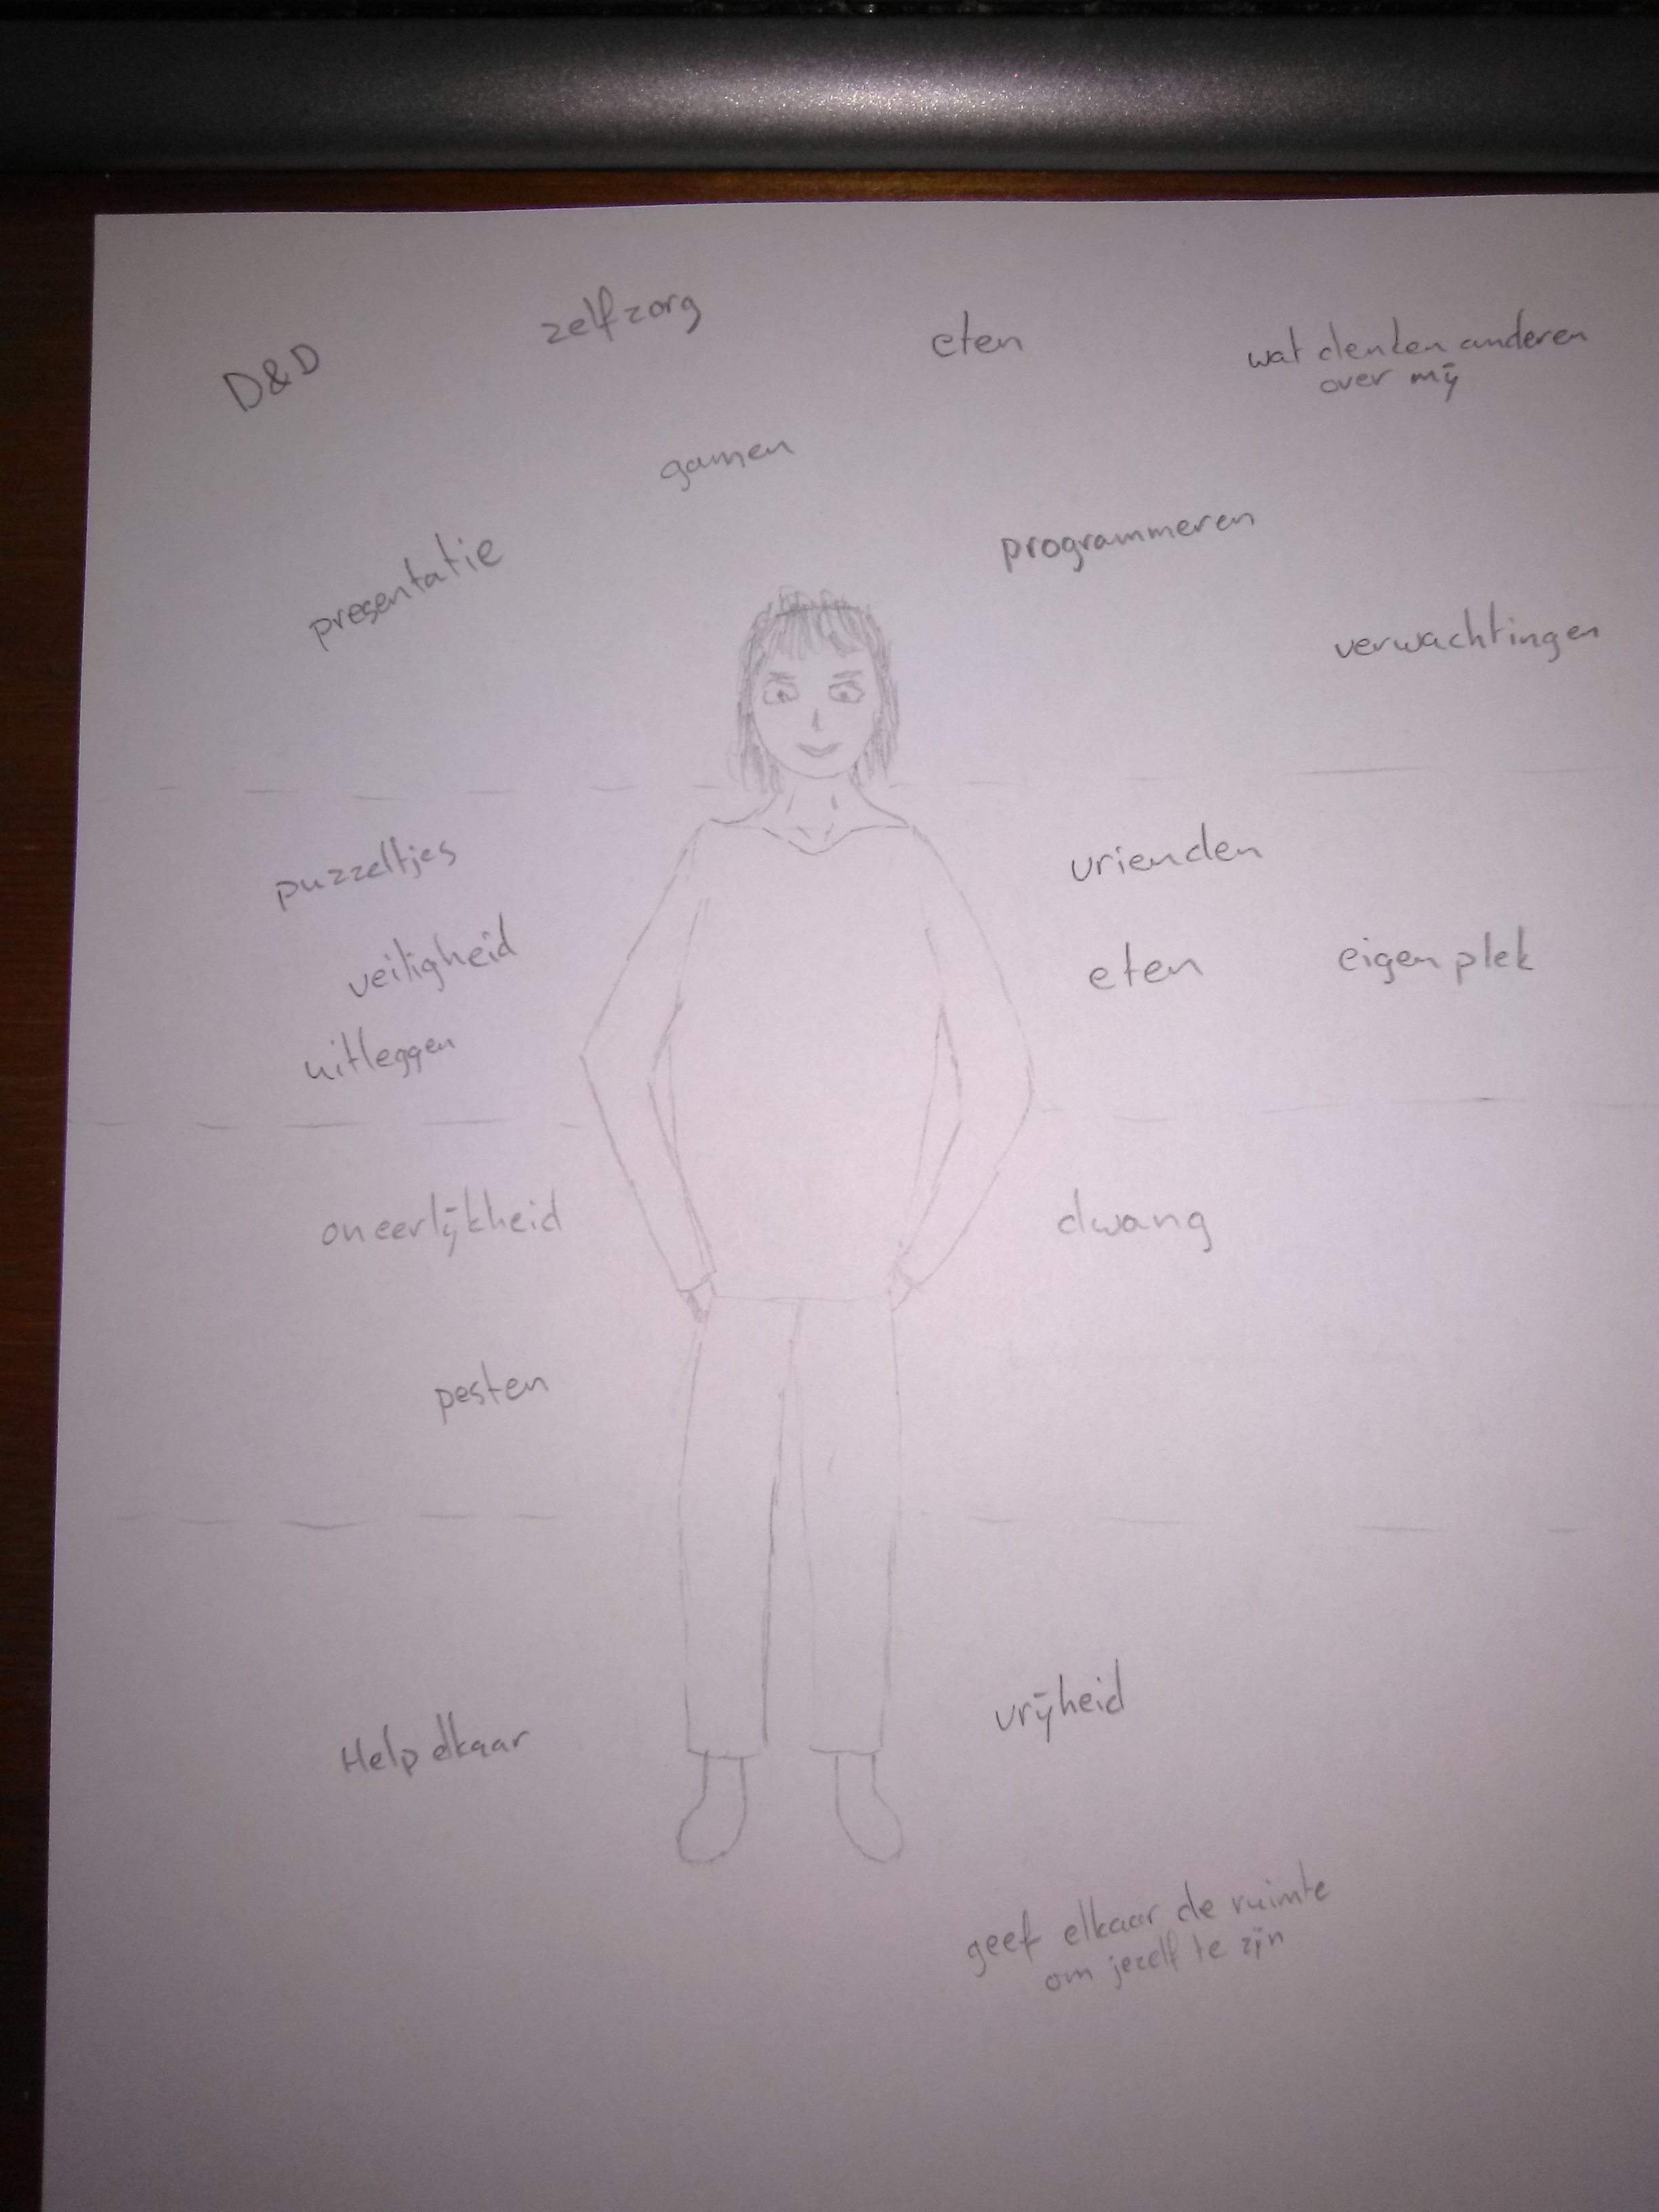 D&D
zelfzorg
eten
wat denken anderen
over mij
gamen
presentatie
programmeren
verwachtingen
puzzeltjes
vrienden
veiligheid
eten
eigen plek
uitleggen
oneerlijkheid
dwang
pesten
Help elkaar
vrijheid
geef elkaar de ruimte
om jezelf te zijn